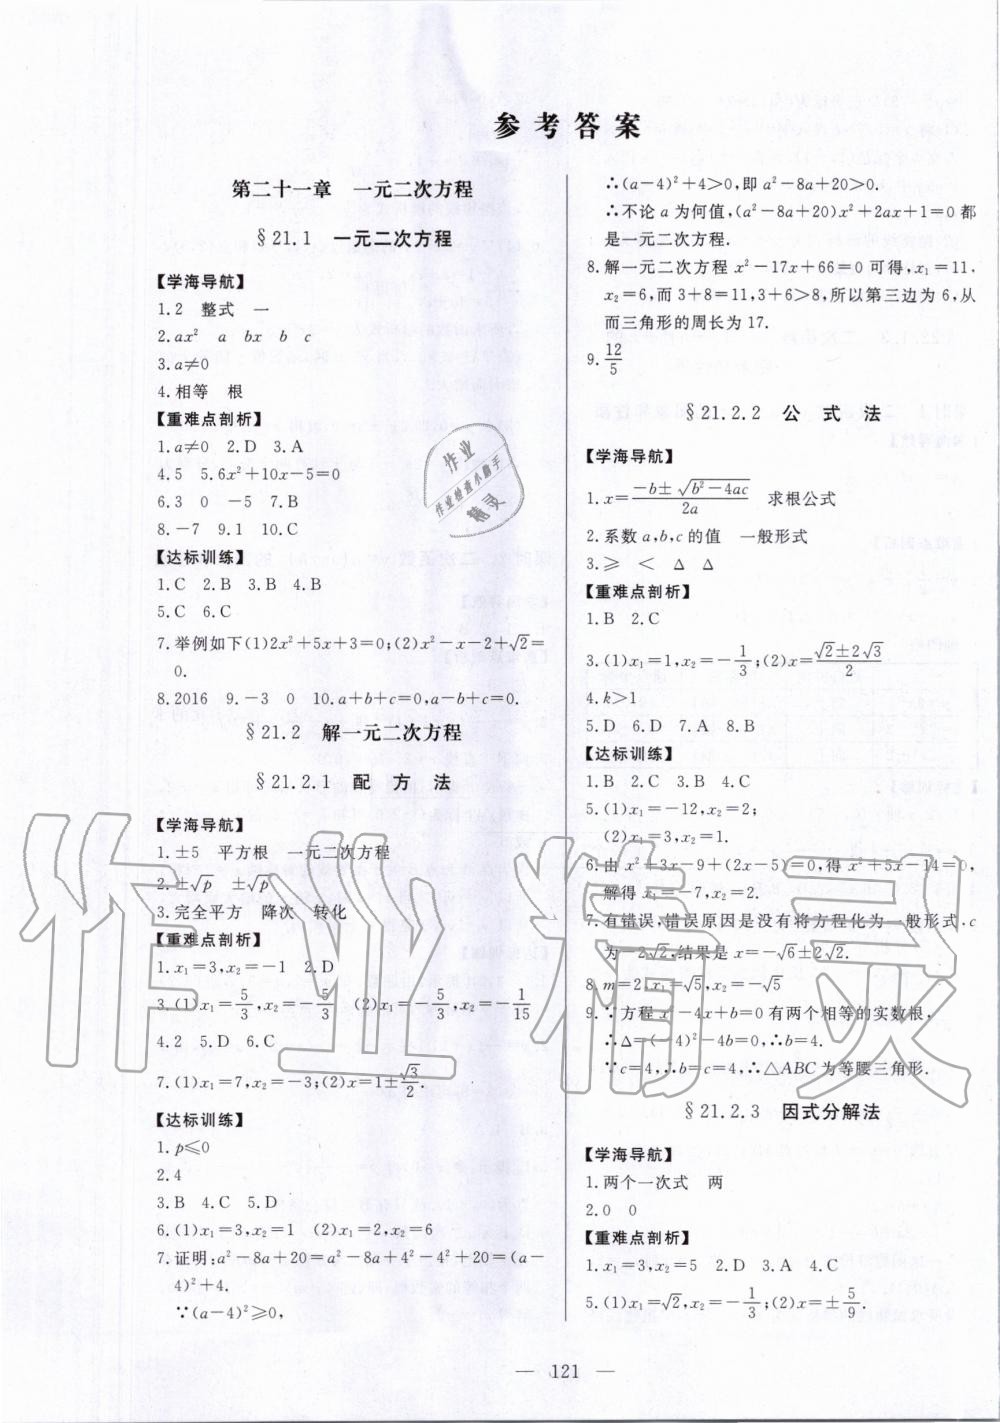 参考答案
第二十一章　一元二次方程
§21.1　一元二次方程
【学海导航】
1.2　整式　一
2.ax²　a　bx　b　c
3.a≠0
4.相等　根
【重难点剖析】
1.a≠0　2.D　3.A
4.5　5.6x²+10x-5=0
6.3　0　-5　7.B
8.-7　9.1　10.C
【达标训练】
1.C　2.B　3.B　4.B
5.C　6.C
7.举例如下(1)2x²+5x+3=0;(2)x²-x-2+√2=
0.
8.2016　9.-3　0　10.a+b+c=0,a-b+c=0.
§21.2　解一元二次方程
§21.2.1　配　方　法
【学海导航】
1.±5　平方根　一元二次方程
2.±√p　±√p
3.完全平方　降次　转化
【重难点剖析】
1.x₁=3,x₂=-1　2.D
3.(1)x₁=5/3,x₂=-5/3　(2)x₁=-5/3,x₂=-1/15
4.2　5.D　6.C
7.(1)x₁=7,x₂=-3;(2)x=1±√3/2.
【达标训练】
1.p≤0
2.4
3.B　4.C　5.D
6.(1)x₁=3,x₂=1　(2)x₁=2,x₂=6
7.证明:a²-8a+20=a²-8a+4²-4²+20=(a-
4)²+4.
∵(a-4)²≥0,
∴(a-4)²+4>0,即a²-8a+20>0.
∴不论a为何值,(a²-8a+20)x²+2ax+1=0都
是一元二次方程.
8.解一元二次方程x²-17x+66=0可得,x₁=11,
x₂=6,而3+8=11,3+6>8,所以第三边为6,从
而三角形的周长为17.
9.12/5
§21.2.2　公　式　法
【学海导航】
1.x=(-b±√(b²-4ac))/2a　求根公式
2.系数a,b,c的值　一般形式
3.≥　<　Δ　Δ
【重难点剖析】
1.B　2.C
3.(1)x₁=1,x₂=-1/3;(2)x=(√2±2√3)/2
4.k>1
5.D　6.D　7.A　8.B
【达标训练】
1.B　2.C　3.B　4.C
5.(1)x₁=-12,x₂=2;
(2)x₁=3,x₂=1.
6.由x²+3x-9+(2x-5)=0,得x²+5x-14=0,
解得x₁=-7,x₂=2.
7.有错误,错误原因是没有将方程化为一般形式.c
为-2√2,结果是x=-√6±2√2.
8.m=2,x₁=√5,x₂=-√5
9.∵方程x²-4x+b=0有两个相等的实数根,
∴Δ=(-4)²-4b=0,∴b=4.
∵c=4,∴b=c=4,∴△ABC为等腰三角形.
§21.2.3　因式分解法
【学海导航】
1.两个一次式　两
2.0　0
【重难点剖析】
1.x₁=3,x₂=5　2.D　3.A　4.C
5.(1)x₁=√2,x₂=-1/3;(2)x=±5/9.
— 121 —
作业
作业检查小助手
精灵
作业精灵